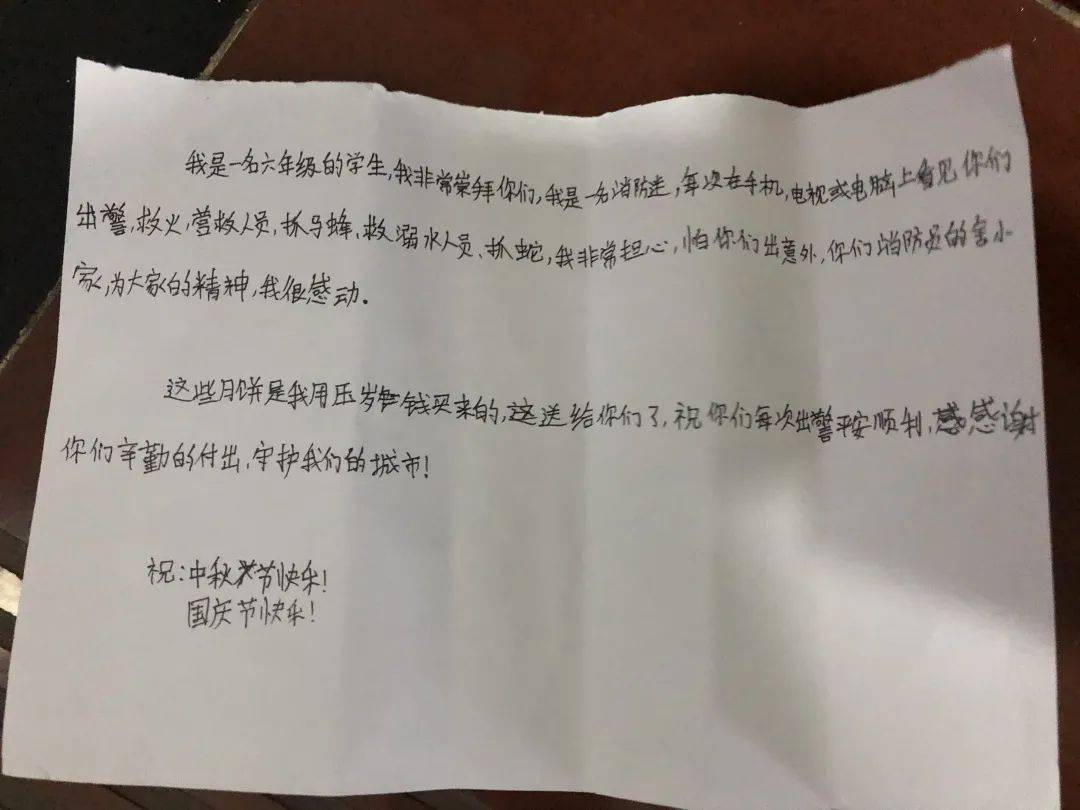 我是一名六年级的学生,我非常崇拜你们,我是一名消防迷,每次在手机,电视或电脑上看见你们
出警,救火,营救人员,抓马蜂、救溺水人员、抓蛇,我非常担心,怕你们出意外,你们消防员的舍小
家,为大家的精神,我很感动。
这些月饼是我用压岁钱买来的,这送给你们了,祝你们每次出警平安顺利,感感谢
你们辛勤的付出,守护我们的城市!
祝:中秋节快乐!
国庆节快乐!